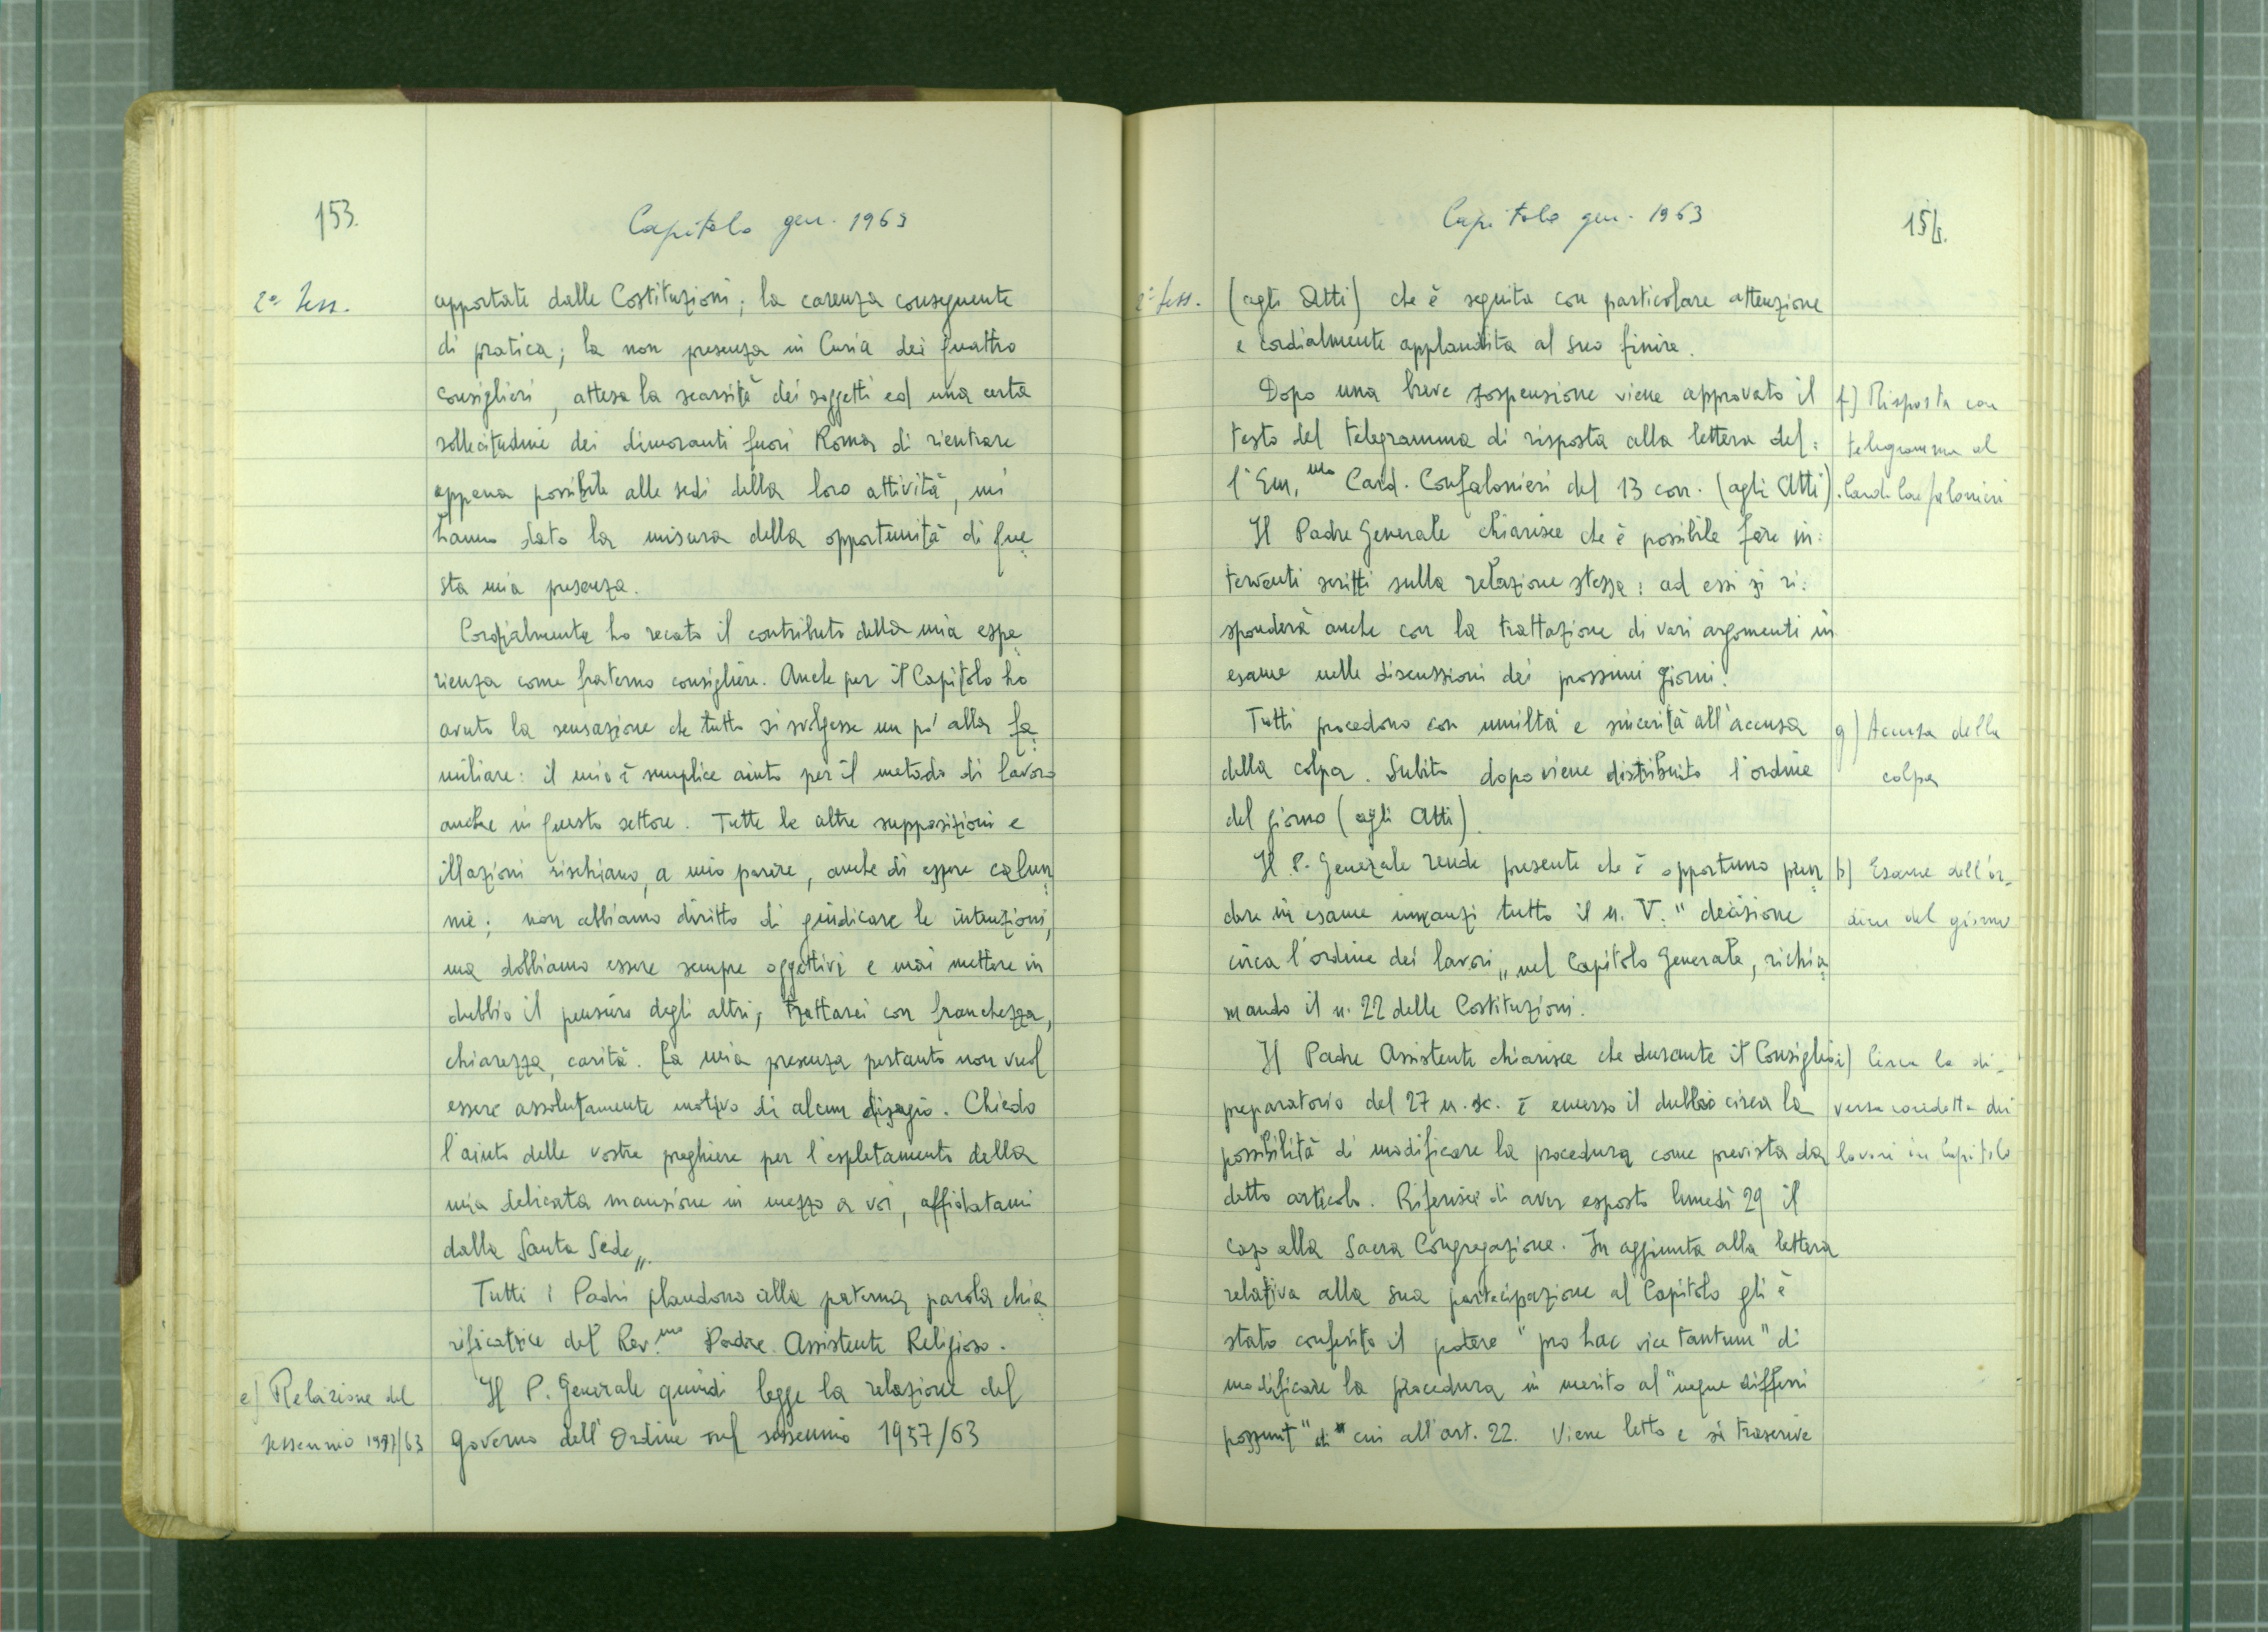 153.
Capitolo gen. 1963
2ª Sess.
apportate dalle Costituzioni; la carenza conseguente
di pratica; la non presenza in Curia dei quattro
consiglieri, attesa la scarsità dei soggetti ed una certa
sollecitudine dei dimoranti fuori Roma di rientrare
appena possibile alle sedi della loro attività, mi
hanno dato la misura della opportunità di que
sta mia presenza.
Cordialmente ho recato il contributo della mia espe
rienza come fraterno consigliere. Anche per il Capitolo ho
avuto la sensazione che tutto si svolgesse un po' alla fa
miliare: il mio è semplice aiuto per il metodo di lavoro
anche in questo settore. Tutte le altre supposizioni e
illazioni rischiano, a mio parere, anche di essere calun
nie; non abbiamo diritto di giudicare le intenzioni,
ma dobbiamo essere sempre oggettivi e mai mettere in
dubbio il pensiero degli altri; trattarci con franchezza,
chiarezza, carità. La mia presenza pertanto non vuol
essere assolutamente motivo di alcun disagio. Chiedo
l'aiuto delle vostre preghiere per l'espletamento della
mia delicata mansione in mezzo a voi, affidatami
dalla Santa Sede„.
Tutti i Padri plaudono alla paterna parola chia
rificatrice del Rev.mo Padre Assistente Religioso.
e) Relazione del
sessennio 1957/63
Il P. Generale quindi legge la relazione del
governo dell'Ordine sul sessennio 1957/63
Capitolo gen. 1963
154.
2ª Sess.
(agli Atti) che è seguita con particolare attenzione
e cordialmente applaudita al suo finire.
Dopo una breve sospensione viene approvato il
testo del telegramma di risposta alla lettera del:
l'Em.mo Card. Confalonieri del 13 corr. (agli Atti).
f) Risposta con
telegramma al
Card. Confalonieri
Il Padre Generale chiarisce che è possibile fare in:
terventi scritti sulla relazione stessa: ad essi si ri:
sponderà anche con la trattazione di vari argomenti in
esame nelle discussioni dei prossimi giorni.
Tutti procedono con umiltà e sincerità all'accusa
della colpa. Subito dopo viene distribuito l'ordine
del giorno (agli Atti).
g) Accusa della
colpa
Il P. Generale rende presente che è opportuno pren
dere in esame innanzi tutto il n. V: "decisione
circa l'ordine dei lavori„ nel Capitolo Generale, richia
mando il n. 22 delle Costituzioni.
h) Esame dell'or-
dine del giorno
Il Padre Assistente chiarisce che durante il Consiglio
preparatorio del 27 u. sc. è emerso il dubbio circa la
possibilità di modificare la procedura come prevista da
detto articolo. Riferisce di aver esposto lunedì 29 il
caso alla Sacra Congregazione. In aggiunta alla lettera
relativa alla sua partecipazione al Capitolo gli è
stato conferito il potere "pro hac vice tantum" di
modificare la procedura in merito al "neque differri
possunt" di cui all'art. 22. Viene letto e si trascrive
i) Circa la di-
versa condotta dei
lavori in Capitolo